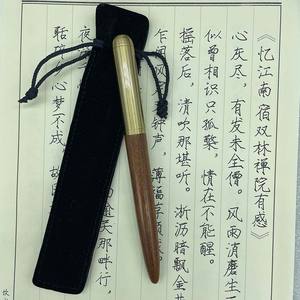 《忆江南 宿双林禪院有感》
心灰尽，有发未全僧。风雨消磨生
似曾相识只孤檠，情在不能醒。
摇落后，清吹那堪听。淅沥暗飘金
乍闻风 钟声，薄福荐
夜 那畔行，
聒碎 心梦不成，故